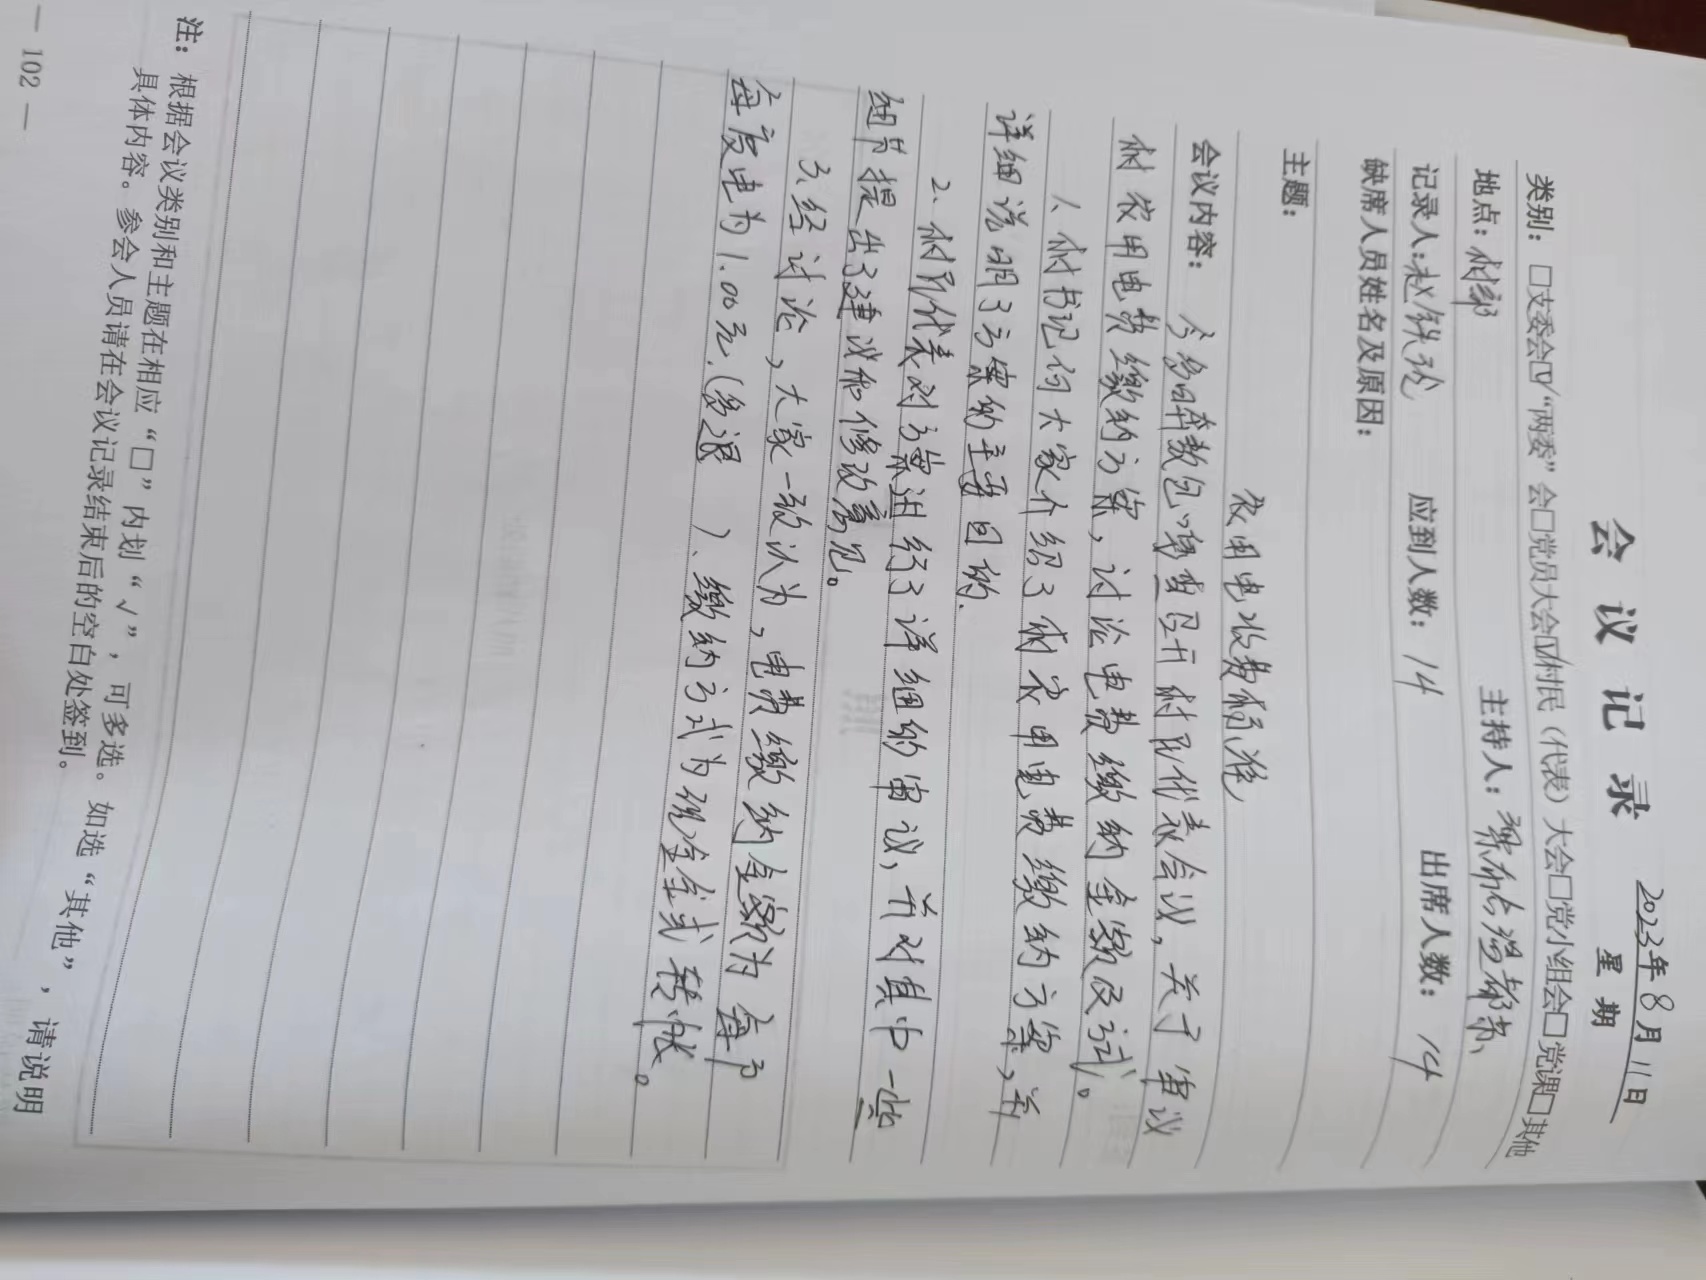 会议记录
2023年8月11日
星期
类别：□支委会☑“两委”会□党员大会☑村民（代表）大会□党小组会□党课□其他
地点：村部 主持人：
记录人：赵铁 应到人数：14 出席人数：14
缺席人员姓名及原因：
主题：
农用电收费标准
会议内容：今 召开村民代表会议，关于审议
村农用电费缴纳方案，讨论电费缴纳金额及方式。
1、村书记向大家介绍了村农用电费缴纳方案，并
详细说明了方案的主要目的.
2、村民代表对方案进行了详细的审议，并对其中一些
细节提出了建议和修改意见。
3、经讨论，大家一致认为，电费缴纳金额为每
每度电为1.00元.(多退 )、缴纳方式为现金或转帐。
注：根据会议类别和主题在相应“□”内划“√”，可多选。如选“其他”，请说明
具体内容。参会人员请在会议记录结束后的空白处签到。
— 102 —